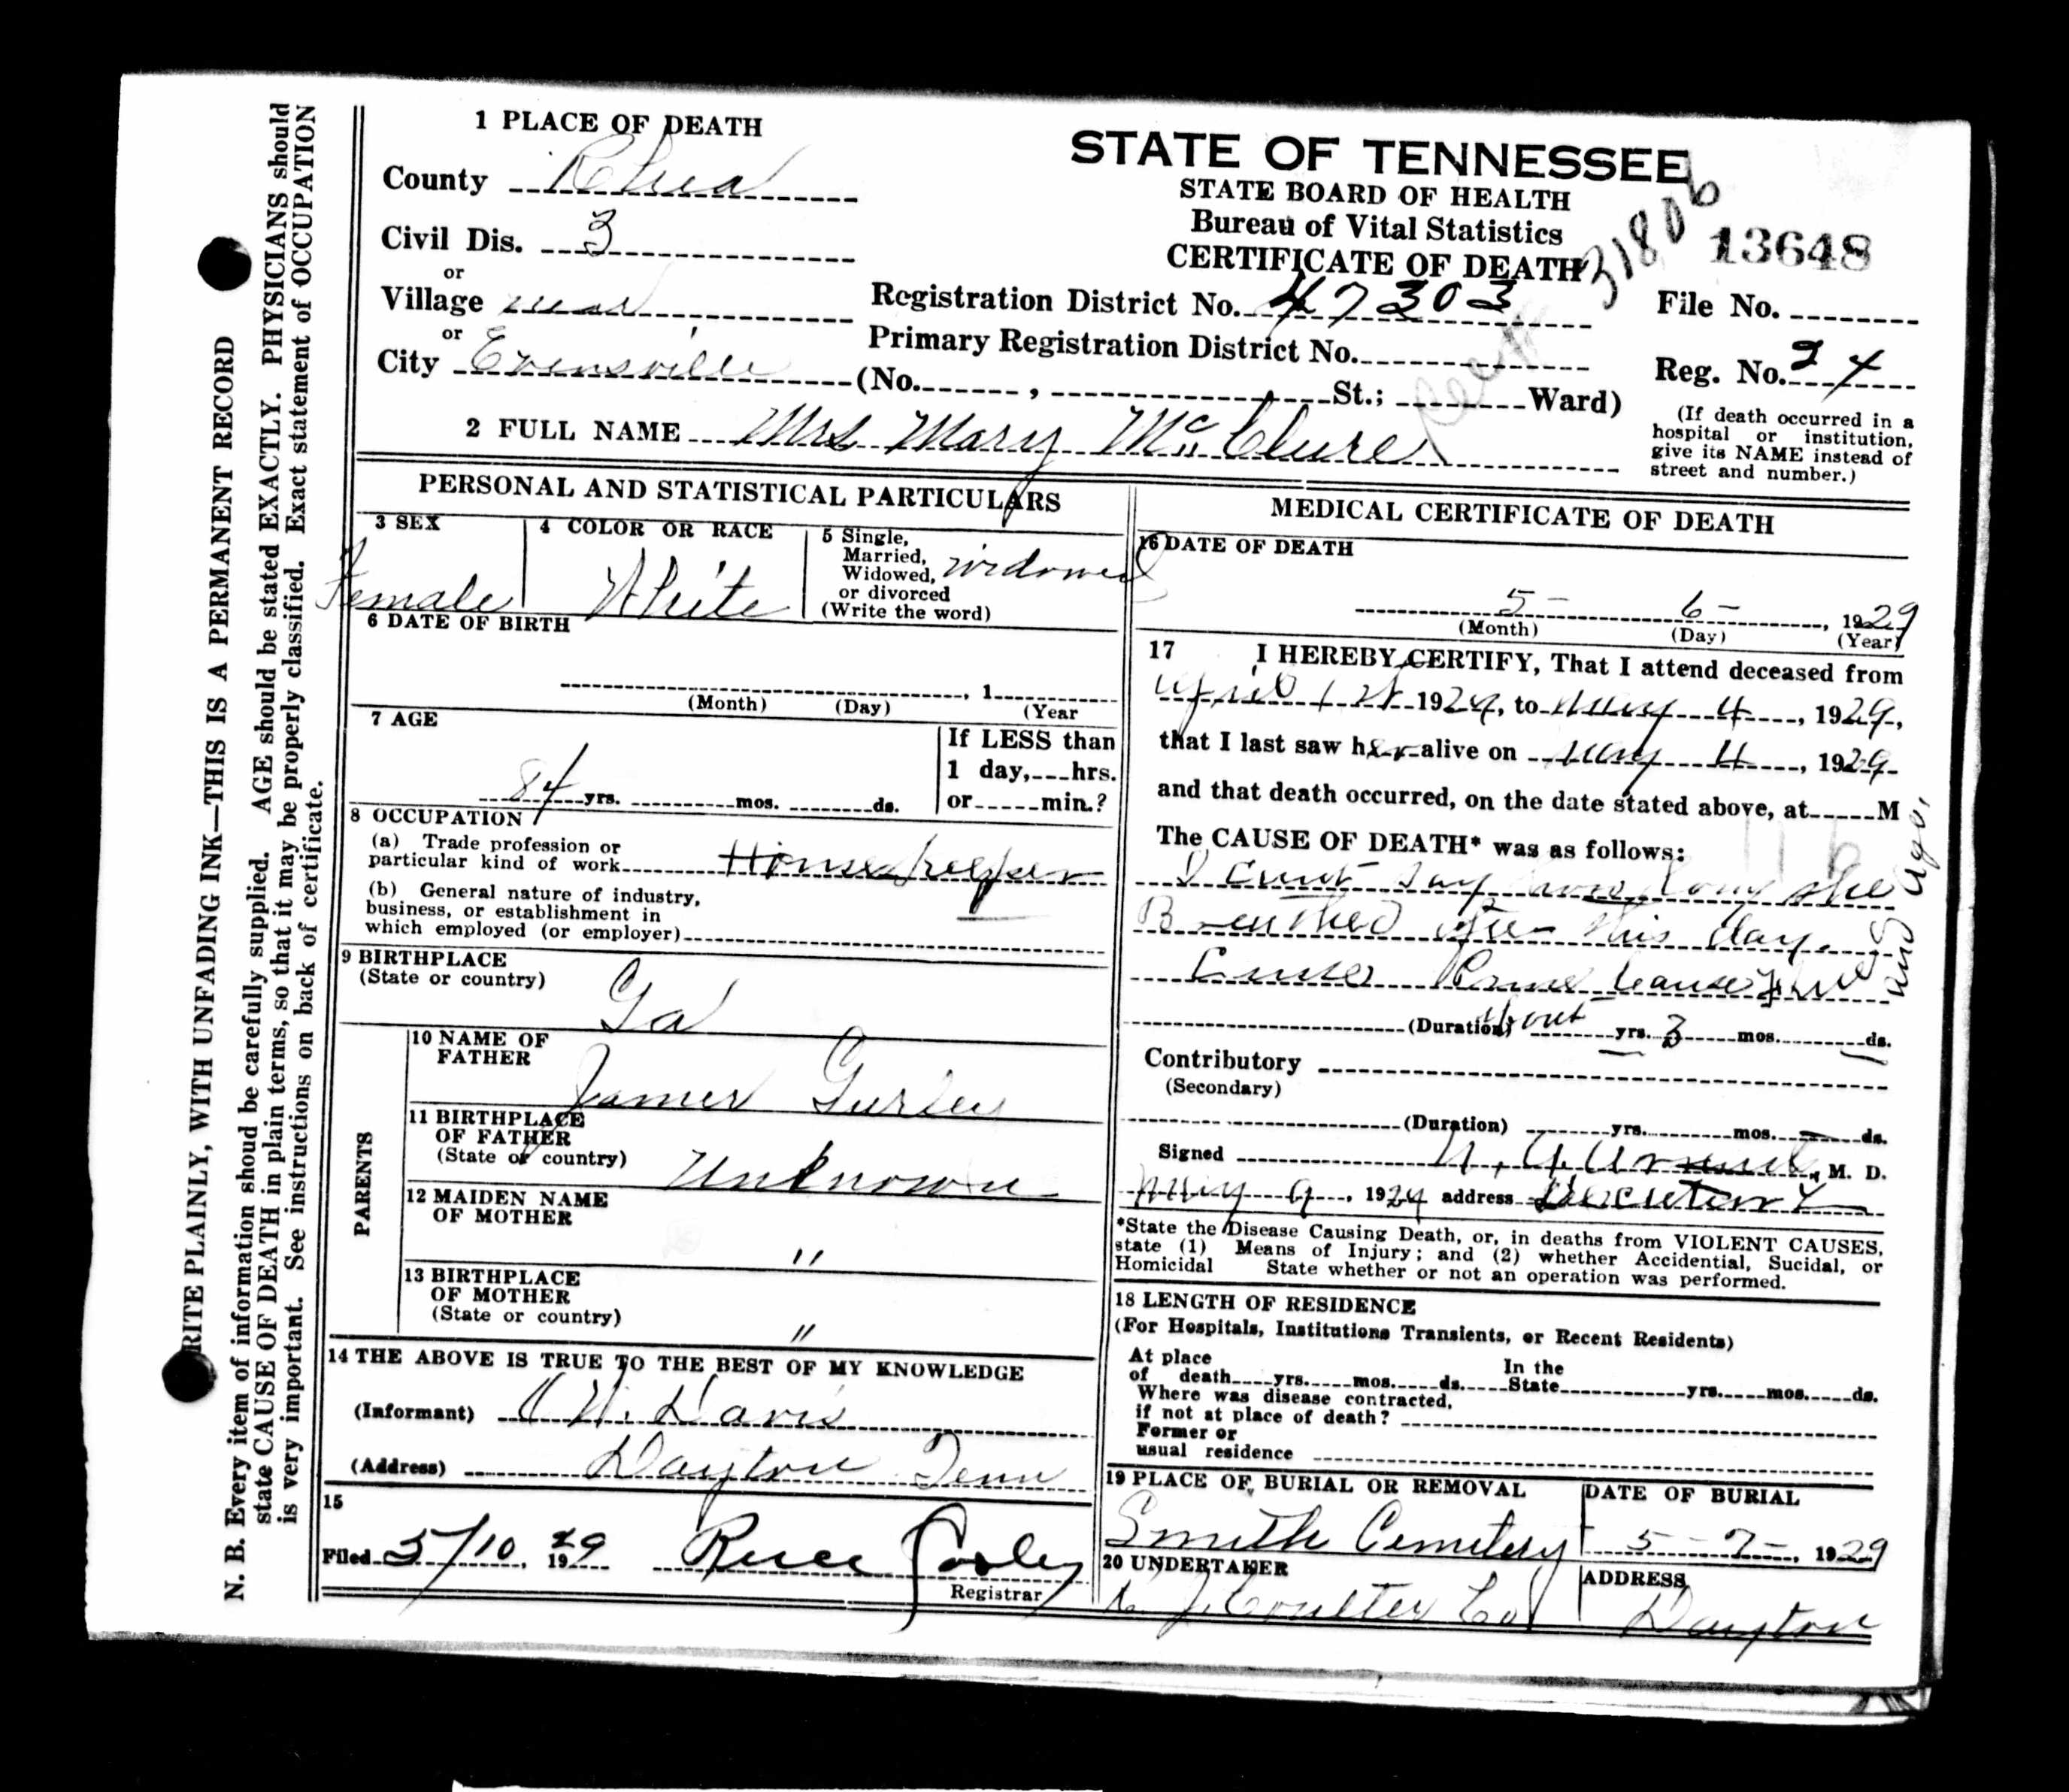 1 PLACE OF DEATH
County Rhea
Civil Dis. 3
or
Village near
or
City Evensville (No. , St.; Ward)
STATE OF TENNESSEE
STATE BOARD OF HEALTH
Bureau of Vital Statistics
CERTIFICATE OF DEATH
31806
13648
Registration District No. 47303
File No.
Primary Registration District No.
Reg. No. 24
(If death occurred in a
hospital or institution,
give its NAME instead of
street and number.)
2 FULL NAME Mrs Mary McClure
PERSONAL AND STATISTICAL PARTICULARS
3 SEX
Female
4 COLOR OR RACE
White
5 Single,
Married,
Widowed,
or divorced
(Write the word)
widowed
6 DATE OF BIRTH
, 1
(Month) (Day) (Year
7 AGE
84 yrs. mos. ds.
If LESS than
1 day, hrs.
or min.?
8 OCCUPATION
(a) Trade profession or
particular kind of work Housekeeper
(b) General nature of industry,
business, or establishment in
which employed (or employer)
9 BIRTHPLACE
(State or country)
Ga
PARENTS
10 NAME OF
FATHER
James Gurley
11 BIRTHPLACE
OF FATHER
(State or country)
Unknown
12 MAIDEN NAME
OF MOTHER
"
13 BIRTHPLACE
OF MOTHER
(State or country)
"
14 THE ABOVE IS TRUE TO THE BEST OF MY KNOWLEDGE
(Informant) W. Davis
(Address) Dayton Tenn
15
Filed 5/10, 1929
Registrar
MEDICAL CERTIFICATE OF DEATH
16 DATE OF DEATH
5- 6-, 1929
(Month) (Day) (Year)
17 I HEREBY CERTIFY, That I attend deceased from
April 1st 1929, to May 4, 1929,
that I last saw her alive on May 4, 1929
and that death occurred, on the date stated above, at M
The CAUSE OF DEATH* was as follows:
I cant say how long she
Breathed after this day.
Cause and age.
(Duration) about yrs. 3 mos. ds.
Contributory
(Secondary)
(Duration) yrs. mos. ds.
Signed , M. D.
May 9, 1929 address
*State the Disease Causing Death, or, in deaths from VIOLENT CAUSES,
state (1) Means of Injury; and (2) whether Accidential, Sucidal, or
Homicidal State whether or not an operation was performed.
18 LENGTH OF RESIDENCE
(For Hospitals, Institutions Transients, or Recent Residents)
At place
of death yrs. mos. ds. In the
State yrs. mos. ds.
Where was disease contracted,
if not at place of death?
Former or
usual residence
19 PLACE OF BURIAL OR REMOVAL
Smith Cemetery
DATE OF BURIAL
5-7-, 1929
20 UNDERTAKER
J. Coulter Co
ADDRESS
Dayton
RITE PLAINLY, WITH UNFADING INK—THIS IS A PERMANENT RECORD
N. B. Every item of information shoud be carefully supplied. AGE should be stated EXACTLY. PHYSICIANS should
state CAUSE OF DEATH in plain terms, so that it may be properly classified. Exact statement of OCCUPATION
is very important. See instructions on back of certificate.